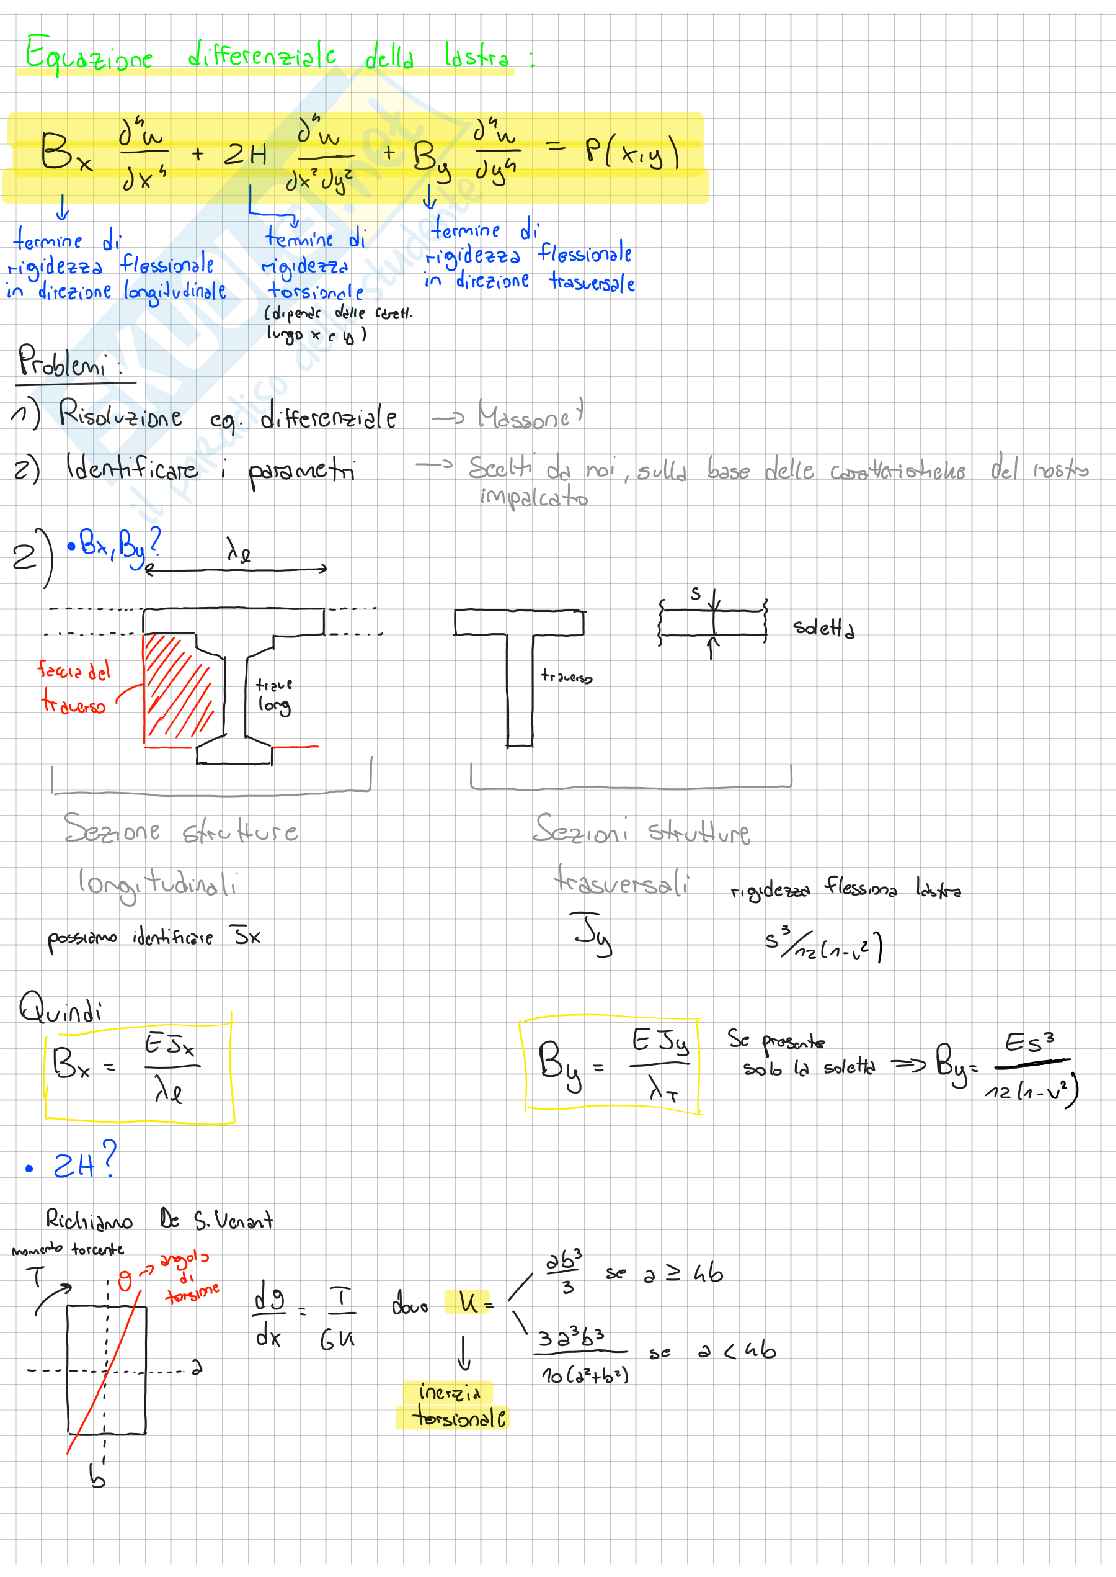 Equazione differenziale della lastra :
Bx ∂⁴w/∂x⁴ + 2H ∂⁴w/∂x²∂y² + By ∂⁴w/∂y⁴ = P(x,y)
termine di rigidezza flessionale in direzione longitudinale
termine di rigidezza torsionale (dipende dalle caratt. lungo x e y)
termine di rigidezza flessionale in direzione trasversale
Problemi :
1) Risoluzione eq. differenziale → Massonet
2) Identificare i parametri → Scelti da noi, sulla base delle caratteristiche del nostro
impalcato
2) • Bx, By?
λe
s
soletta
faccia del
traverso
trave
long
traverso
Sezione strutture
longitudinali
Sezioni strutture
trasversali
rigidezza flessiona lastra
possiamo identificare Jx
Jy
s³/12(1-ν²)
Quindi
Bx = EJx/λe
By = EJy/λT
Se presente
solo la soletta ⇒ By = Es³/12(1-ν²)
• 2H?
Richiamo De S. Venant
momento torcente
T
θ → angolo
di
torsione
a
b
dθ/dx = T/GK dove K =
ab³/3 se a ≥ 4b
3a³b³/10(a²+b²) se a < 4b
inerzia
torsionale